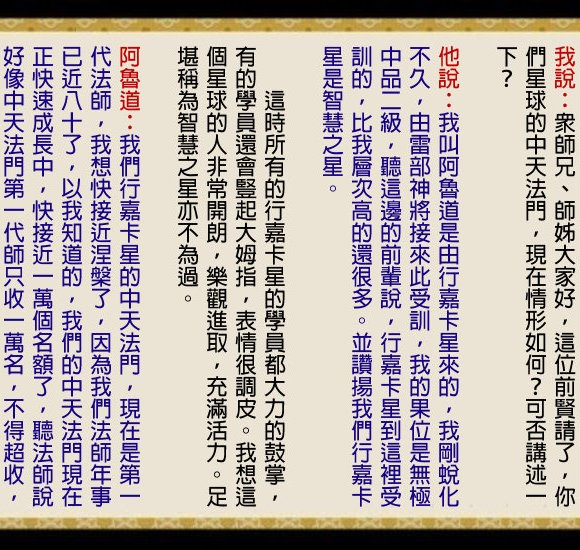 我說：眾師兄、師姊大家好，這位前賢請了，你
們星球的中天法門，現在情形如何？可否講述一
下？
他說：我叫阿魯道是由行嘉卡星來的，我剛蛻化
不久，由雷部神將接來此受訓，我的果位是無極
中品二級，聽這邊的前輩說，行嘉卡星到這裡受
訓的，比我層次高的還很多。並讚揚我們行嘉卡
星是智慧之星。
這時所有的行嘉卡星的學員都大力的鼓掌，
有的學員還會豎起大姆指，表情很調皮。我想這
個星球的人非常開朗，樂觀進取，充滿活力。足
堪稱為智慧之星亦不為過。
阿魯道：我們行嘉卡星的中天法門，現在是第一
代法師，我想快接近涅槃了，因為我們法師年事
已近八十了，以我知道的，我們的中天法門現在
正快速成長中，快接近一萬個名額了，聽法師說
好像中天法門第一代師只收一萬名，不得超收，